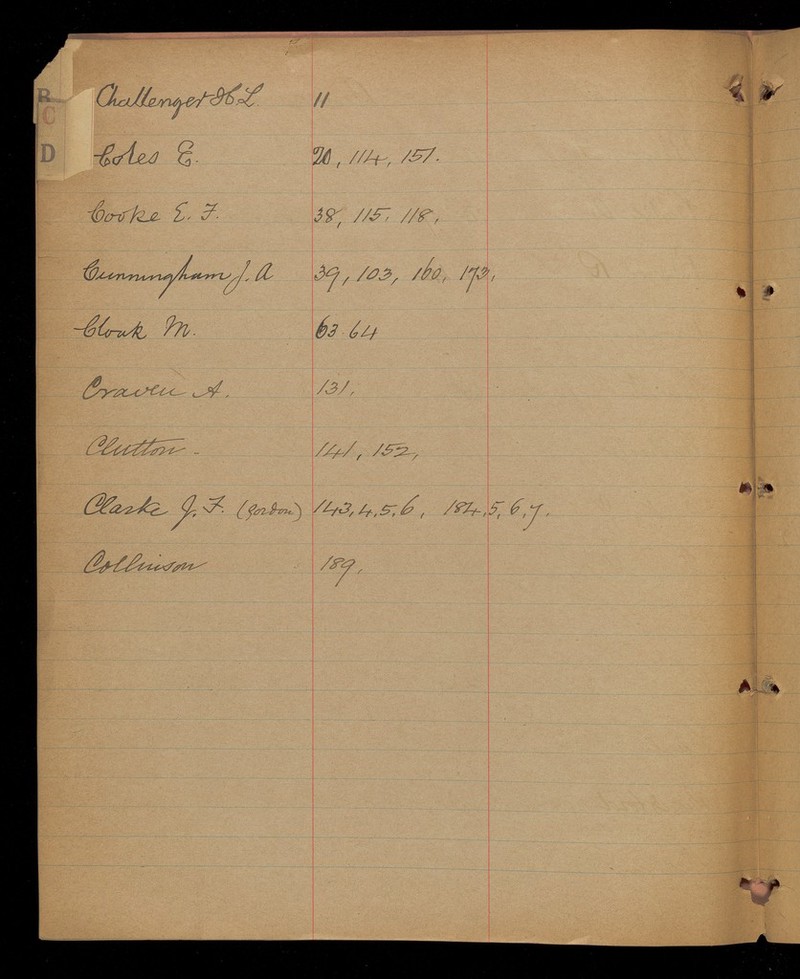 B
C
D
Challenger H. L. 11
Coles E. 20, 114, 151.
Cooke E. F. 38, 115, 118,
Cunningham J. A 39, 103, 160, 173,
Cloak M. 63 64
Craven A. 131.
Clutton - 141, 152,
Clarke J. F. (Gordon) 143,4,5,6, 184,5,6,7.
Collinson 189,